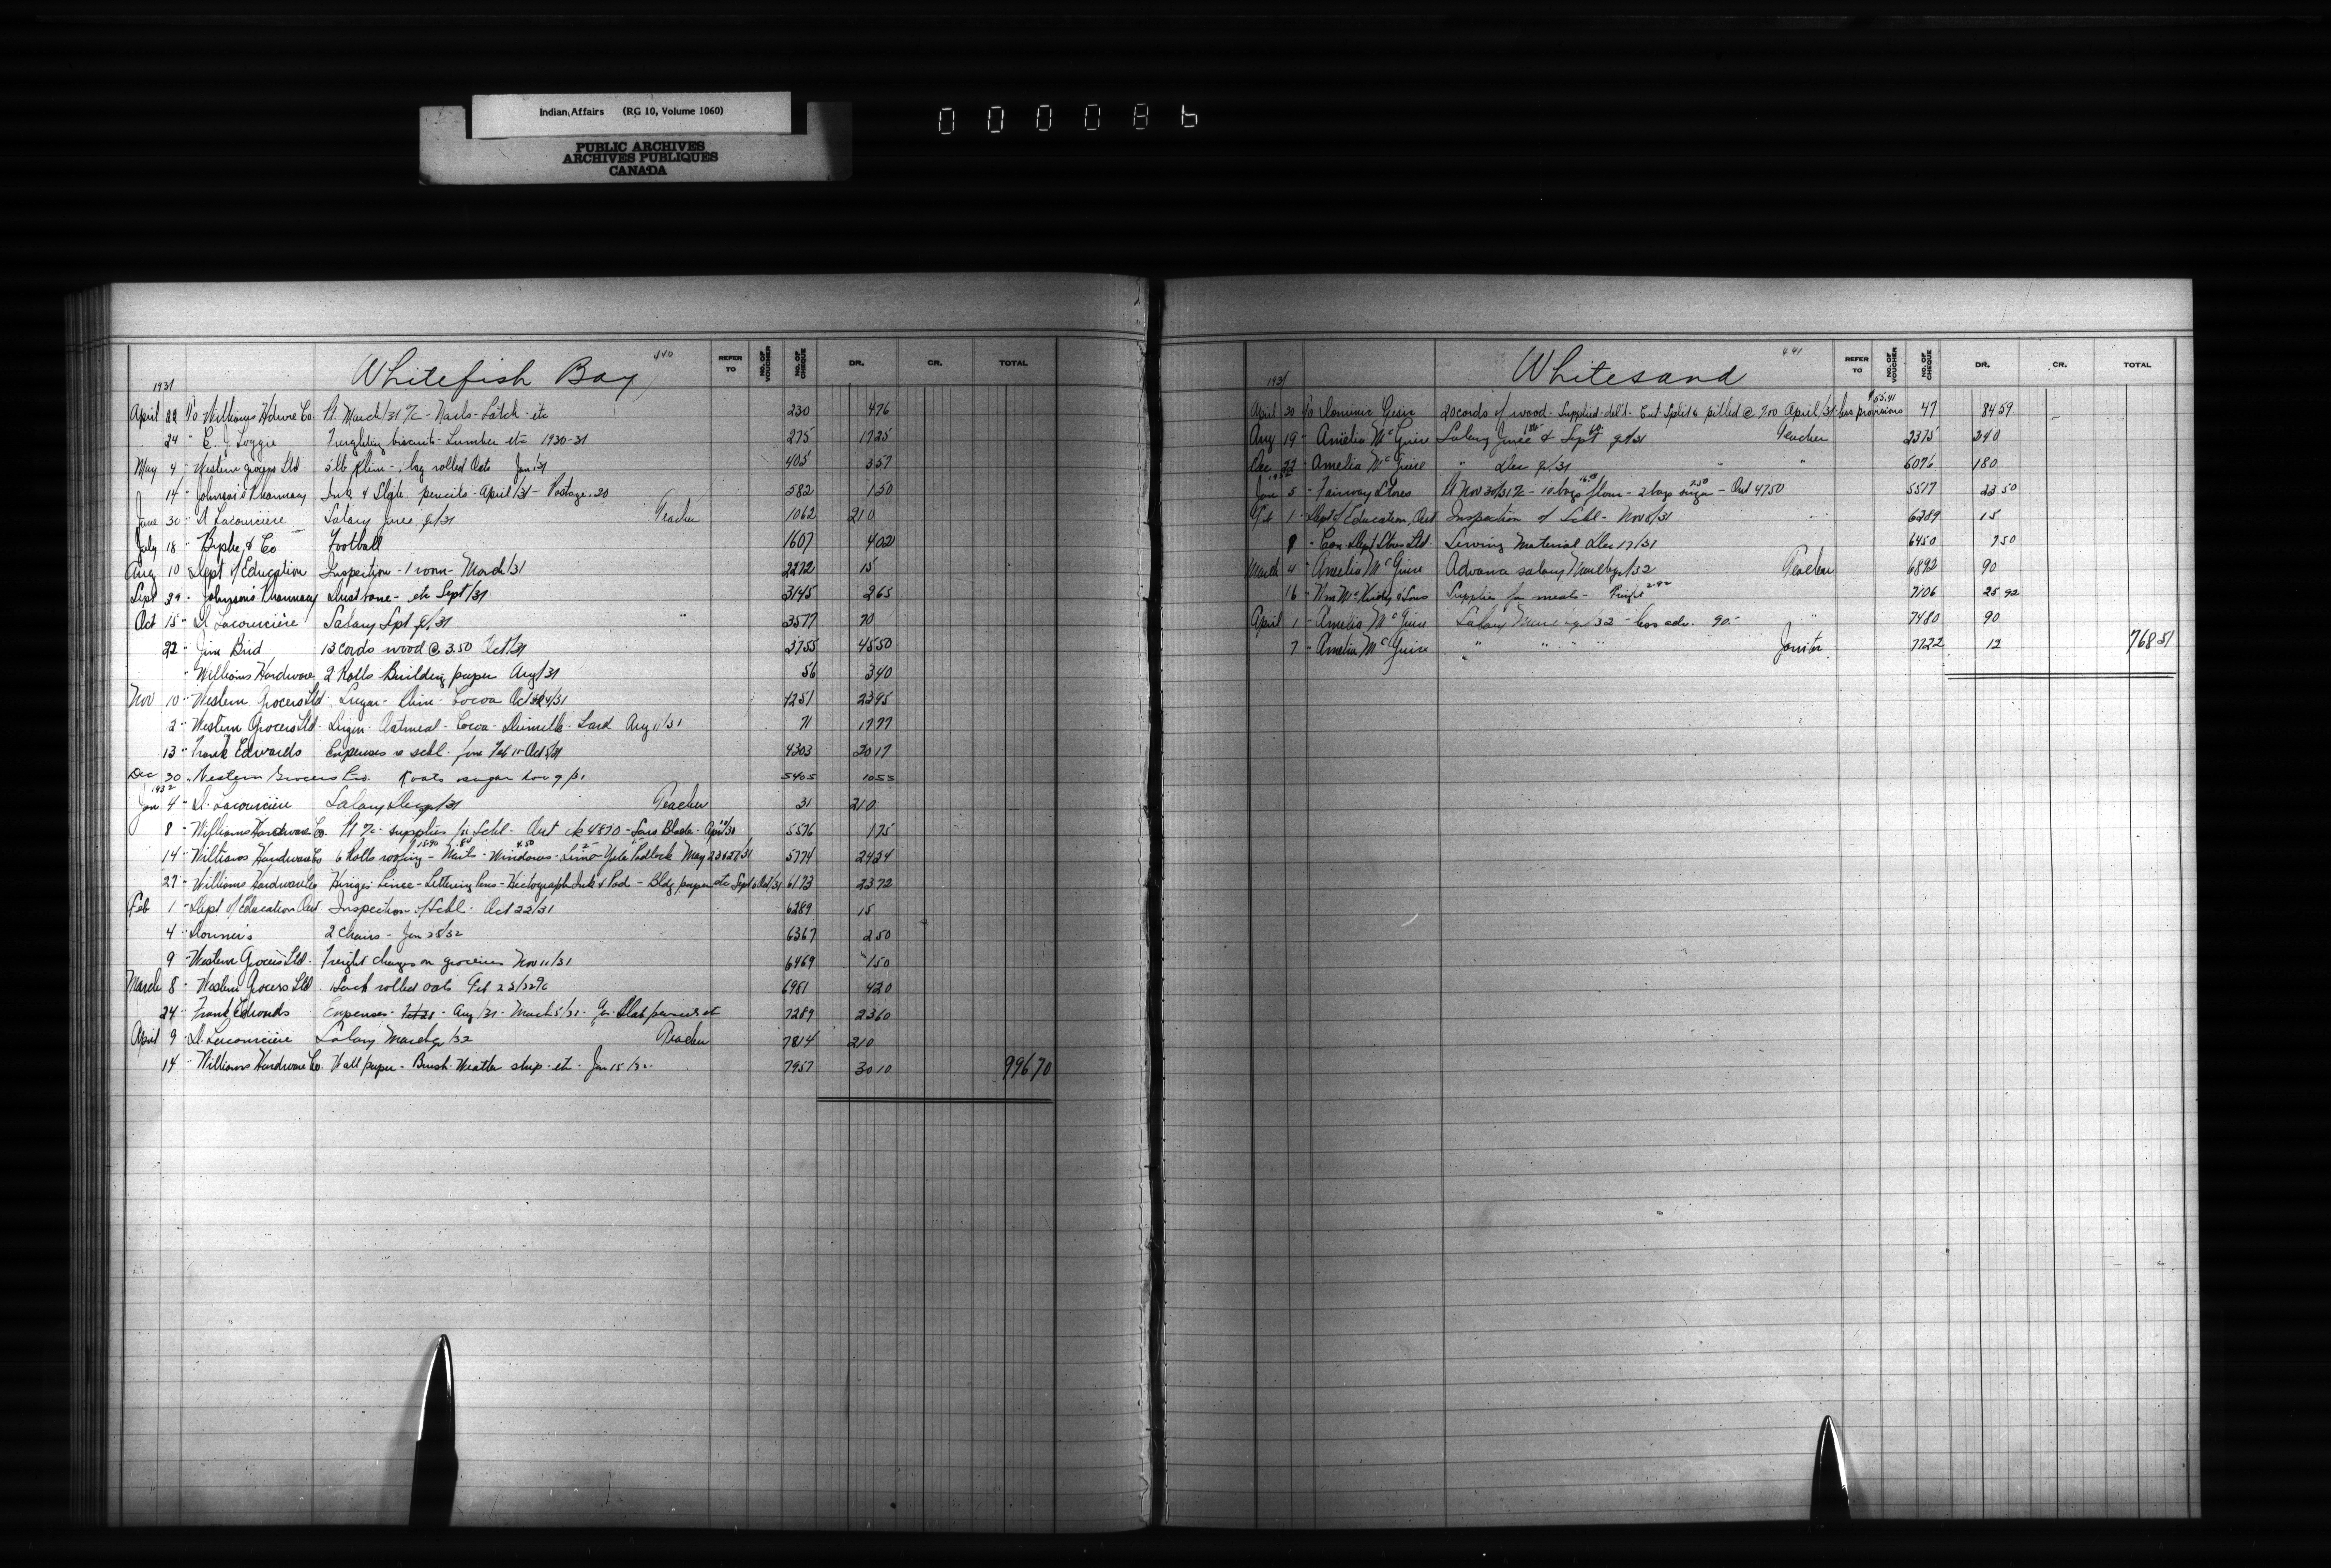 Indian Affairs (RG 10, Volume 1060)
PUBLIC ARCHIVES
ARCHIVES PUBLIQUES
CANADA
000086
Whitefish Bay 440
REFER TO NO. OF VOUCHER NO. OF CHEQUE DR. CR. TOTAL
1931
April 22 To Williams Hdwre Co. Pt March/31 a/c - Nails - Latch - etc 230 4 76
24 " E. J. Loggie biscuits - Lumber etc 1930-31 275 17 25
May 4 " Western Ltd 5 lb Klim - 1 bag rolled Oats Jan/31 405 3 57
14 " Johnson's Pharmacy Ink & Slate pencils - April/31 - Postage .20 582 1 50
June 30 " Salary June q/31 Teacher 1062 210
July 18 " & Co Football 1607 4 02
Aug 10 " Dept of Education Inspection - 1 room - March/31 2272 15
Sept 29 " Johnson's Pharmacy Dustbane - etc Sept/31 3145 2 65
Oct 15 " Salary Spt q/31 " 3577 70
22 " Jim Bird 13 cords wood @ 3.50 Oct/31 3755 45 50
" Williams Hardware 2 Rolls Building paper Aug/31 56 3 40
Nov 10 " Western Grocers Ltd Sugar - Klim - Cocoa 4251 23 95
2 " Western Grocers Ltd Sugar - Oatmeal - Cocoa - - Lard Aug 11/31 71 17 77
13 " Frank Edwards Expenses re schl. Feb 11 - Oct 5/31 4303 20 17
Dec 30 " Western Grocers Ltd. sugar 5405 10 53
1932
Jan 4 " Salary Dec q/31 Teacher 31 210
8 " Williams Hardware Co. Pt a/c supplies for Schl - ck 4870 - Saw Blade - 5576 1 75
14 " Williams Hardware Co 6 Rolls roofing - Nails - Windows - Lime - Yale Padlock May 23 & 27/31 5774 24 24
27 " Williams Hardware Co - Lettering Pens - Hectograph Ink & Pad - Bldg paper etc Sept & Oct/31 6173 23 72
Feb 1 " Dept of Education Ont Inspection of Schl - Oct 22/31 6289 15
4 " 2 Chairs - Jan 28/32 6367 2 50
9 " Western Grocers Ltd. Freight charges on groceries Nov 11/31 6469 1 50
March 8 " Western Grocers Ltd 1 sack rolled oats Feb 23/32 a/c 6981 4 20
24 " Frank Edwards Expenses - Aug/31 - March 5/32 - 7289 23 60
April 9 " Salary March q/32 Teacher 7814 210
14 " Williams Hardware Co. Wall paper - Brush - Weather strip - etc - Jan 15/32 7957 30 10 996 70
Whitesand 441
REFER TO NO. OF VOUCHER NO. OF CHEQUE DR. CR. TOTAL
1931
April 30 To 20 cords of wood - supplied - del'd - Cut - Split & pilled @ 7.00 April/31 - less provisions $55.41 47 84 59
Aug 19 " Amelia McGuire Salary June 180 & Sept 60 q/31 Teacher 2375 240
Dec 22 " Amelia McGuire " Dec q/31 " " 5076 180
1932
Jan 5 " Fairway Stores Pt Nov 30/31 a/c - 10 bags flour - 2 bags sugar 7.50 - 4750 5517 23 50
Feb 1 " Dept of Education, Ont Inspection of Schl - Nov 5/31 6289 15
8 " Can. Dept Stores Ltd. Sewing Material Dec 17/31 6450 7 50
March 4 " Amelia McGuire Advance salary March q/32 Teacher 6892 90
16 " Wm & Sons Supplies for meals - Freight 2.92 7106 25 92
April 1 " Amelia McGuire Salary March q/32 - less adv. 90.- " 7480 90
7 " Amelia McGuire " " " " Janitor 7722 12 768 51